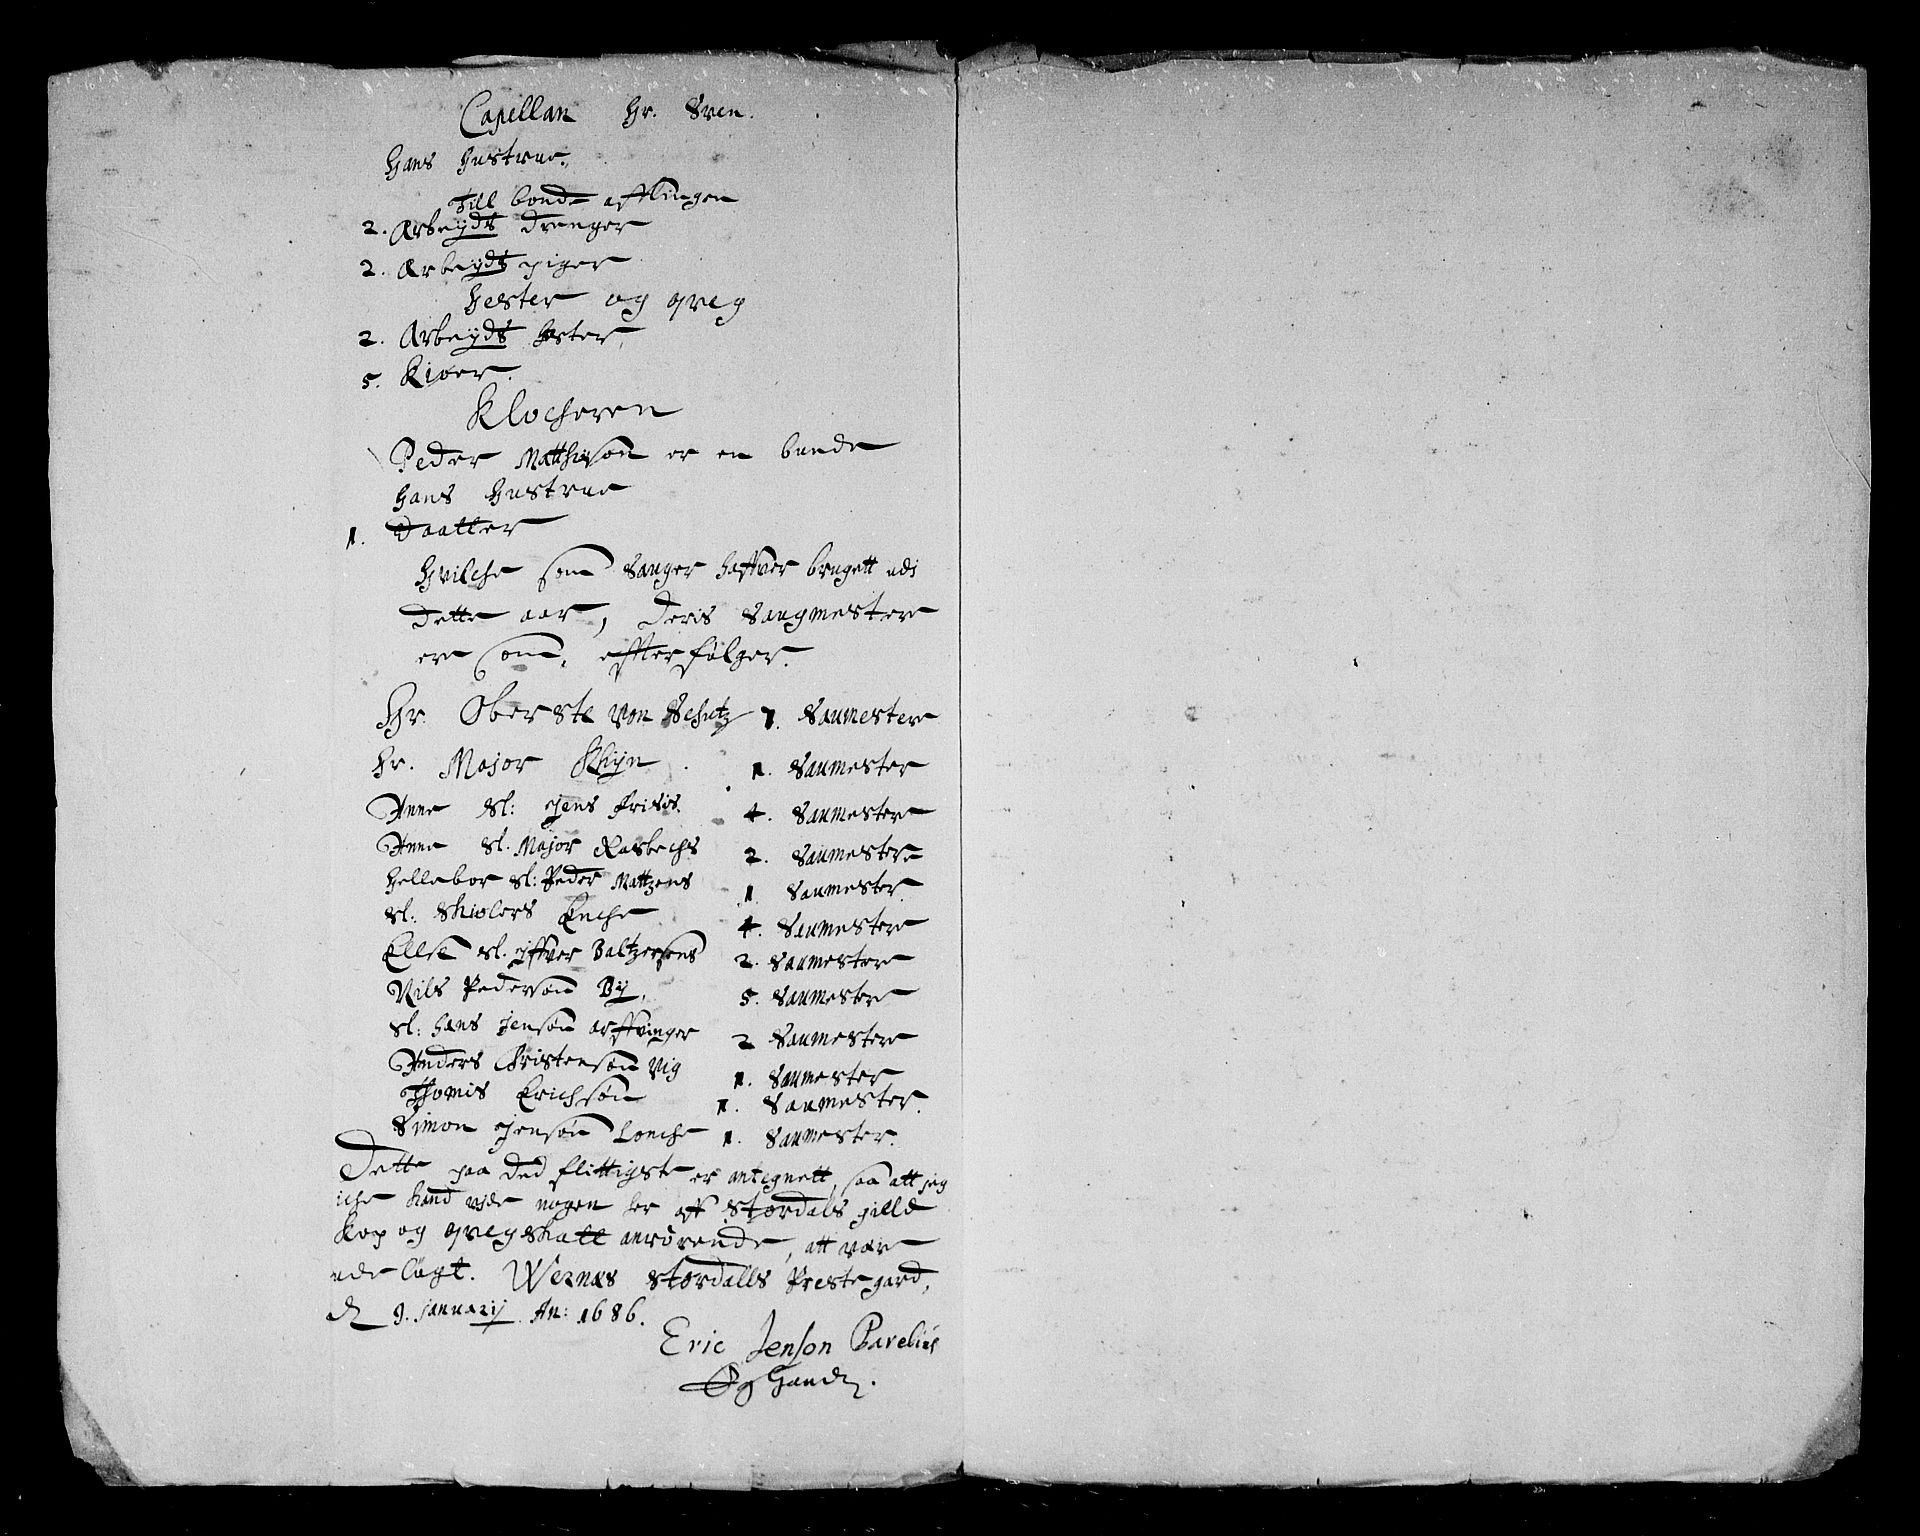 Capellan Hr. Sven.
Hans Hustrue.
Till bonde afflingen
2. Arbeyds drenger
2. Arbeyds piger
Hester og qveg
2. Arbeyds hester,
5. Kiøer.
Klocheren
Peder Matthisøn er en bunde
Hans Hustrue
1. Daatter
Hvilche som Sauger haffver brugett udi
dette aar, deris Saugmestere
ere som, effterfølger.
Hr. Oberste von Schutz 7. Saumestere
Hr. Major Khyn 1. Saumester
Anne Sl: Jens Friisis. 4. Saumestere
Anne Sl. Major Rasbechs 2. Saumestere
Hellebor Sl: Peder Mattzens 1 Saumester.
Sl. Skiølers Enche 4. Saumestere
Ellse Sl. Iffver Baltzersens 2. Saumestere
Nils Pedersøn By, 5. Saumestere
Sl: Hans Jensøn arffvinger 2 Saumestere
Anders Christensøn Vig 1. Saumester
Thomis Erichsøn 1. Saumester.
Simon Jensøn Lonche 1. Saumester.
Dette paa ded flittigste er antegnett, saa att jeg
iche kand vide nogen her aff Størdals gilld
kop og qvegskatt anrørende, att være
ude lagt. Wernæs Størdalls Prestegard,
d 9. January An: 1686.
Eric Jenson Parelius
Eg Handt.